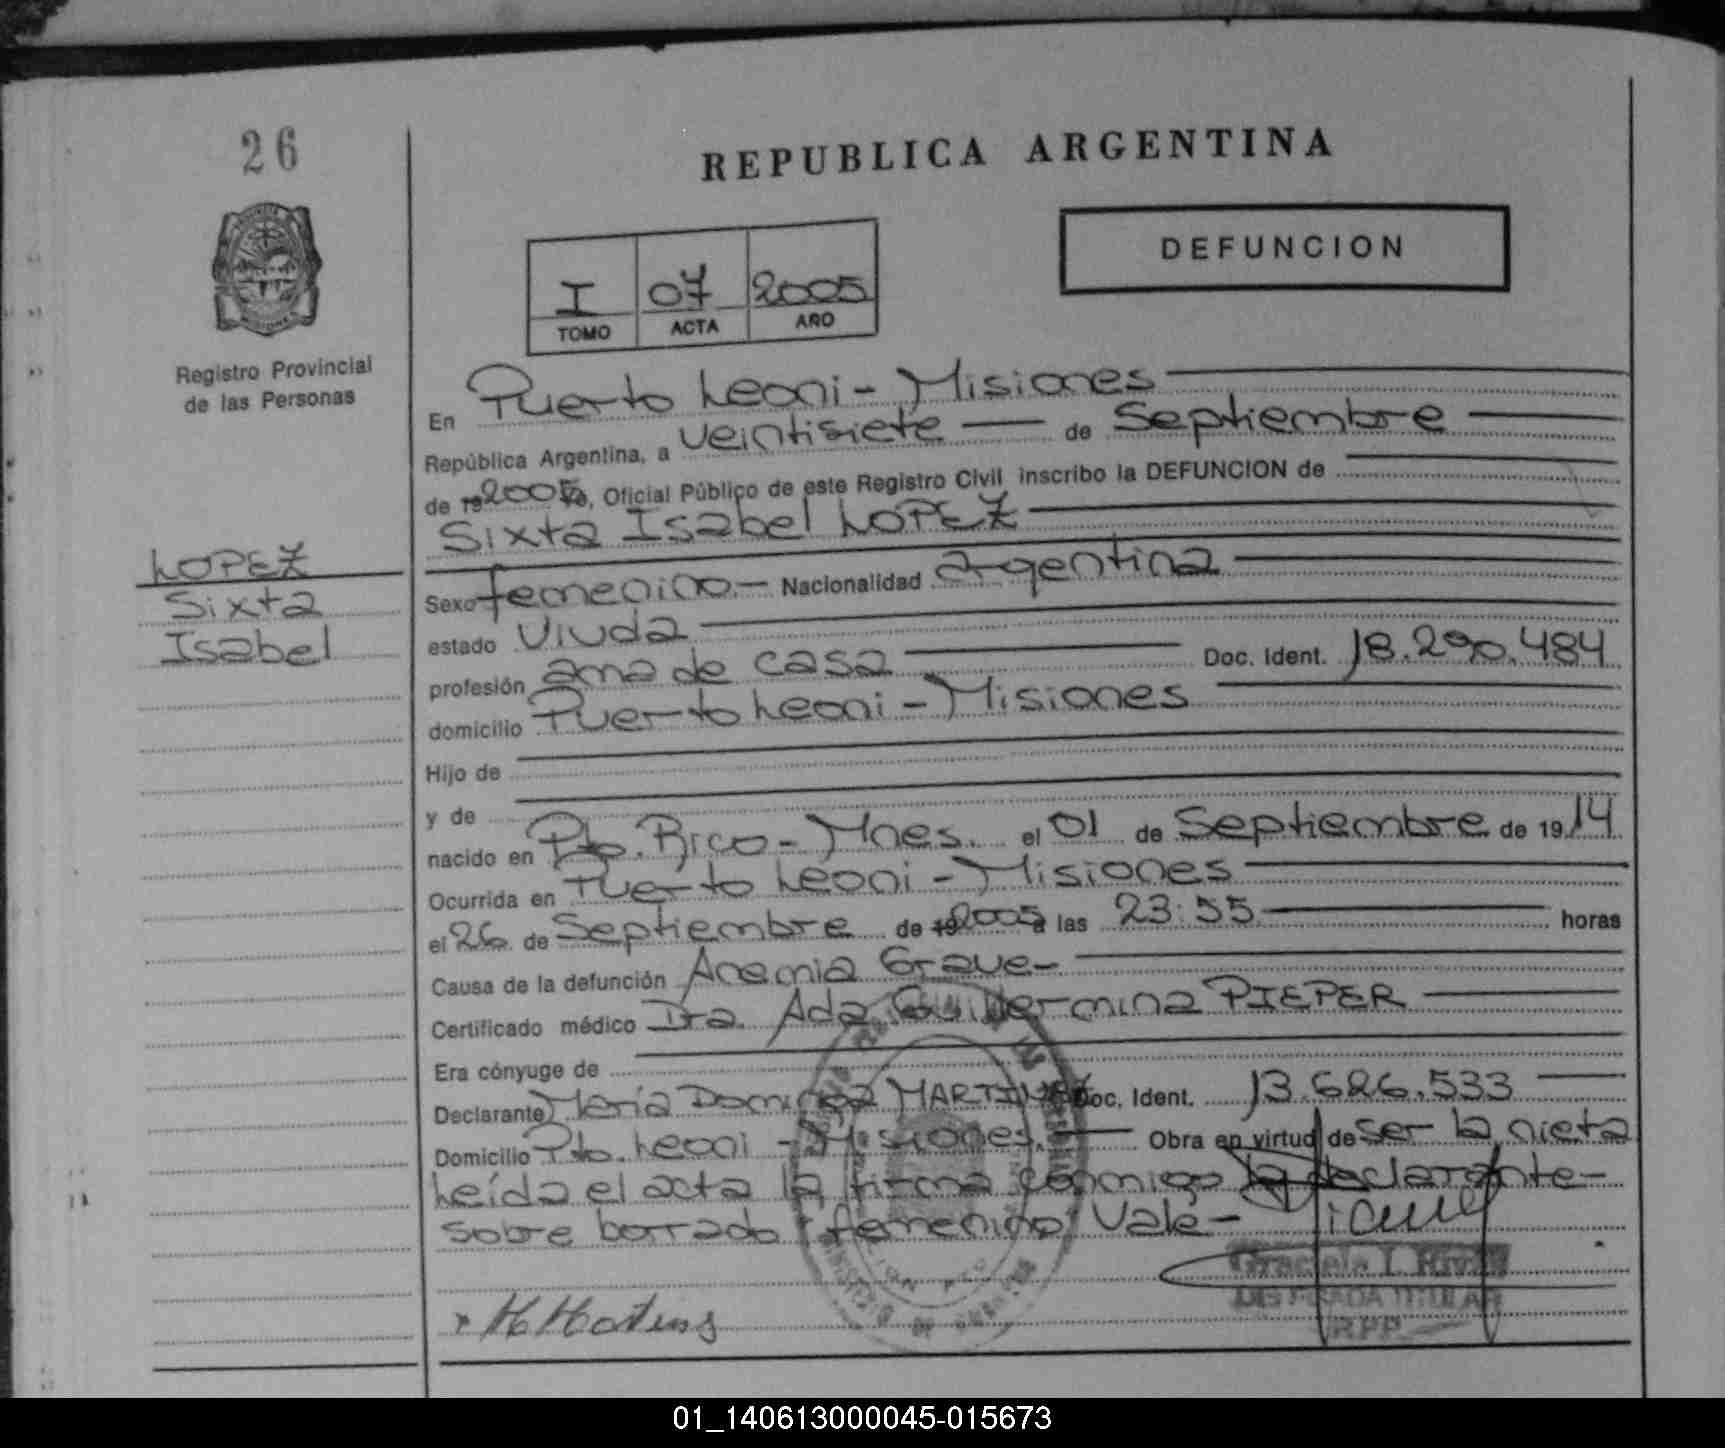 26
REPUBLICA ARGENTINA
DEFUNCION
I 07 2005
TOMO ACTA AÑO
Registro Provincial
de las Personas
En Puerto Leoni - Misiones
República Argentina, a veintisiete de Septiembre
de 19 2005 Yo, Oficial Público de este Registro Civil inscribo la DEFUNCION de
Sixta Isabel LOPEZ
LOPEZ
Sixta
Isabel
Sexo femenino.- Nacionalidad argentina
estado Viuda
profesión ama de casa Doc. Ident. 18.290.484
domicilio Puerto Leoni - Misiones
Hijo de
y de
nacido en Pto. Rico - Mnes. el 01 de Septiembre de 19 14
Ocurrida en Puerto Leoni - Misiones
el 26 de Septiembre de 19 2005 a las 23:55 horas
Causa de la defunción Anemia Grave-
Certificado médico Dra. Ada Guillermina PIEPER
Era cónyuge de
Declarante María Dominga MARTINEZ Doc. Ident. 13.626.533
Domicilio Pto. Leoni - Misiones.- Obra en virtud de Ser la nieta
Leída el acta la firma conmigo la declarante-
sobre borrado: femenino: Vale-
Graciela I.
TITULAR
RPP
01_140613000045-015673